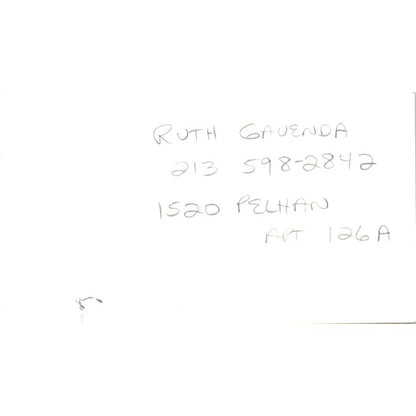 RUTH GAVENDA
213 598-2842
1520 PELHAN
APT 126A